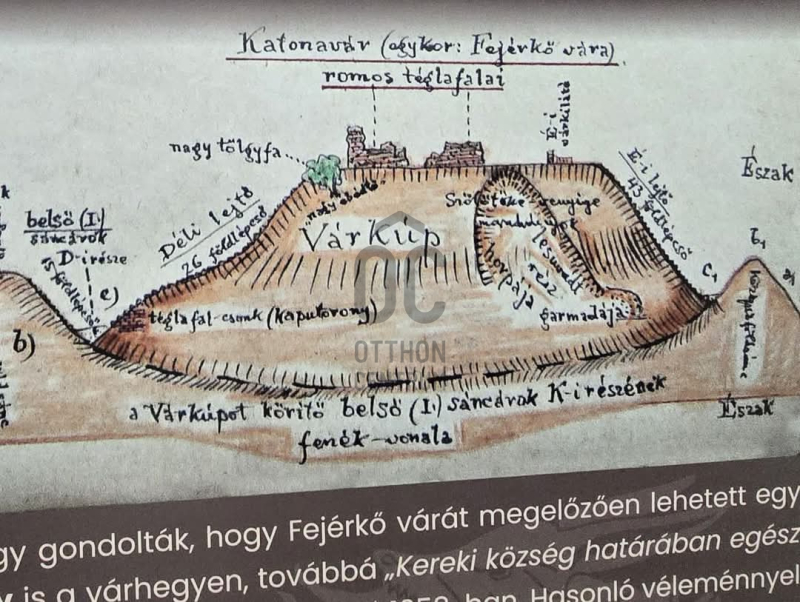 Katonavár (egykor: Fejérkő vára)
romos téglafalai
nagy tölgyfa...
É-i
várkilátó
Észak
belső (I.)
sáncárok
D-i része
15 földlépcső
e)
Déli lejtő
26 földlépcső
É-i lejtő
43 földlépcső
Várkúp
Szőlőtőke
horpája
rész
garmadája
téglafal-csonk (kaputorony)
b)
b1
c1
DC
OTTHON
a Várkúpot körítő belső (I.) sáncárok K-i részének
fenék-vonala
Észak
gy gondolták, hogy Fejérkő várát megelőzően lehetett egy
is a várhegyen, továbbá „Kereki község határában egész
ban. Hasonló véleménnyel